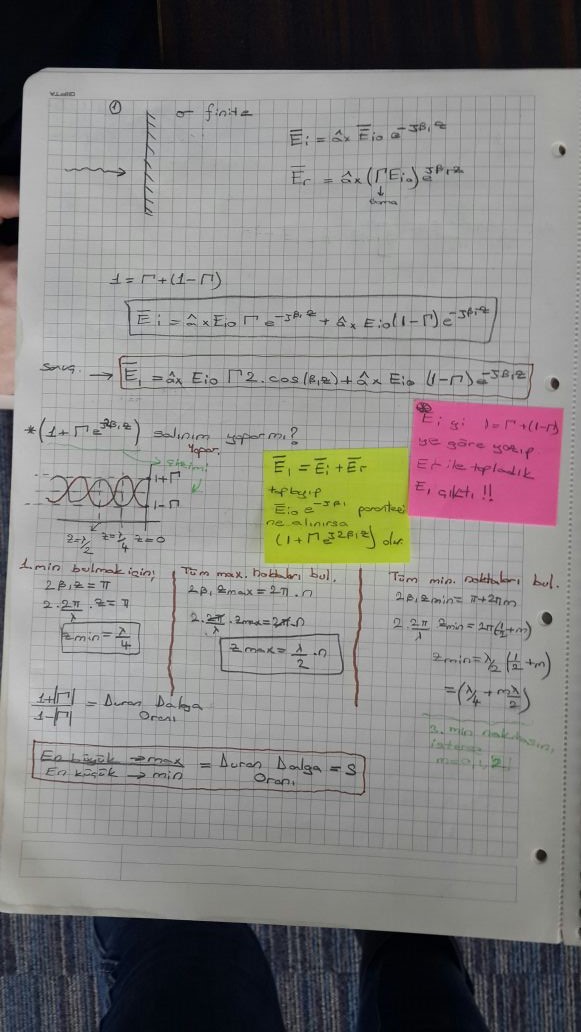 ① σ finite
E̅i = âx E̅io e^-jβ1z
E̅r = âx (ΓEio) e^jβ1z
1 = Γ + (1-Γ)
E̅i = âx Eio Γ e^-jβ1z + âx Eio (1-Γ) e^-jβ1z
→ E̅1 = âx Eio Γ2.cos(β1z) + âx Eio (1-Γ) e^-jβ1z
* (1 + Γe^j2β1z) salınım yapar mı?
Yapar.
1+Γ
1-Γ
z=λ/2 z=λ/4 z=0
E̅1 = E̅i + E̅r
toplayıp
E̅io e^-jβ1 parantezi
ne alınırsa
(1+Γe^j2β1z) olur.
Ei yi 1=Γ+(1-Γ)
ye göre yazıp
Er ile topladık
E1 çıktı !!
1. min bulmak için;
2β1z = π
2.2π/λ.z = π
zmin = λ/4
Tüm max. noktaları bul.
2β1zmax = 2π.n
2.2π/λ.zmax = 2π.n
zmax = λ/2 .n
Tüm min. noktaları bul.
2β1zmin = π+2πm
2.2π/λ zmin = 2π(1/2+m)
zmin = λ/2 (1/2+m)
= (λ/4 + mλ/2)
3. min noktasını
isterse
m=0,1,2!
1+|Γ| / 1-|Γ| = Duran Dalga
Oranı
En büyük → max / En küçük → min = Duran Dalga = S
Oranı